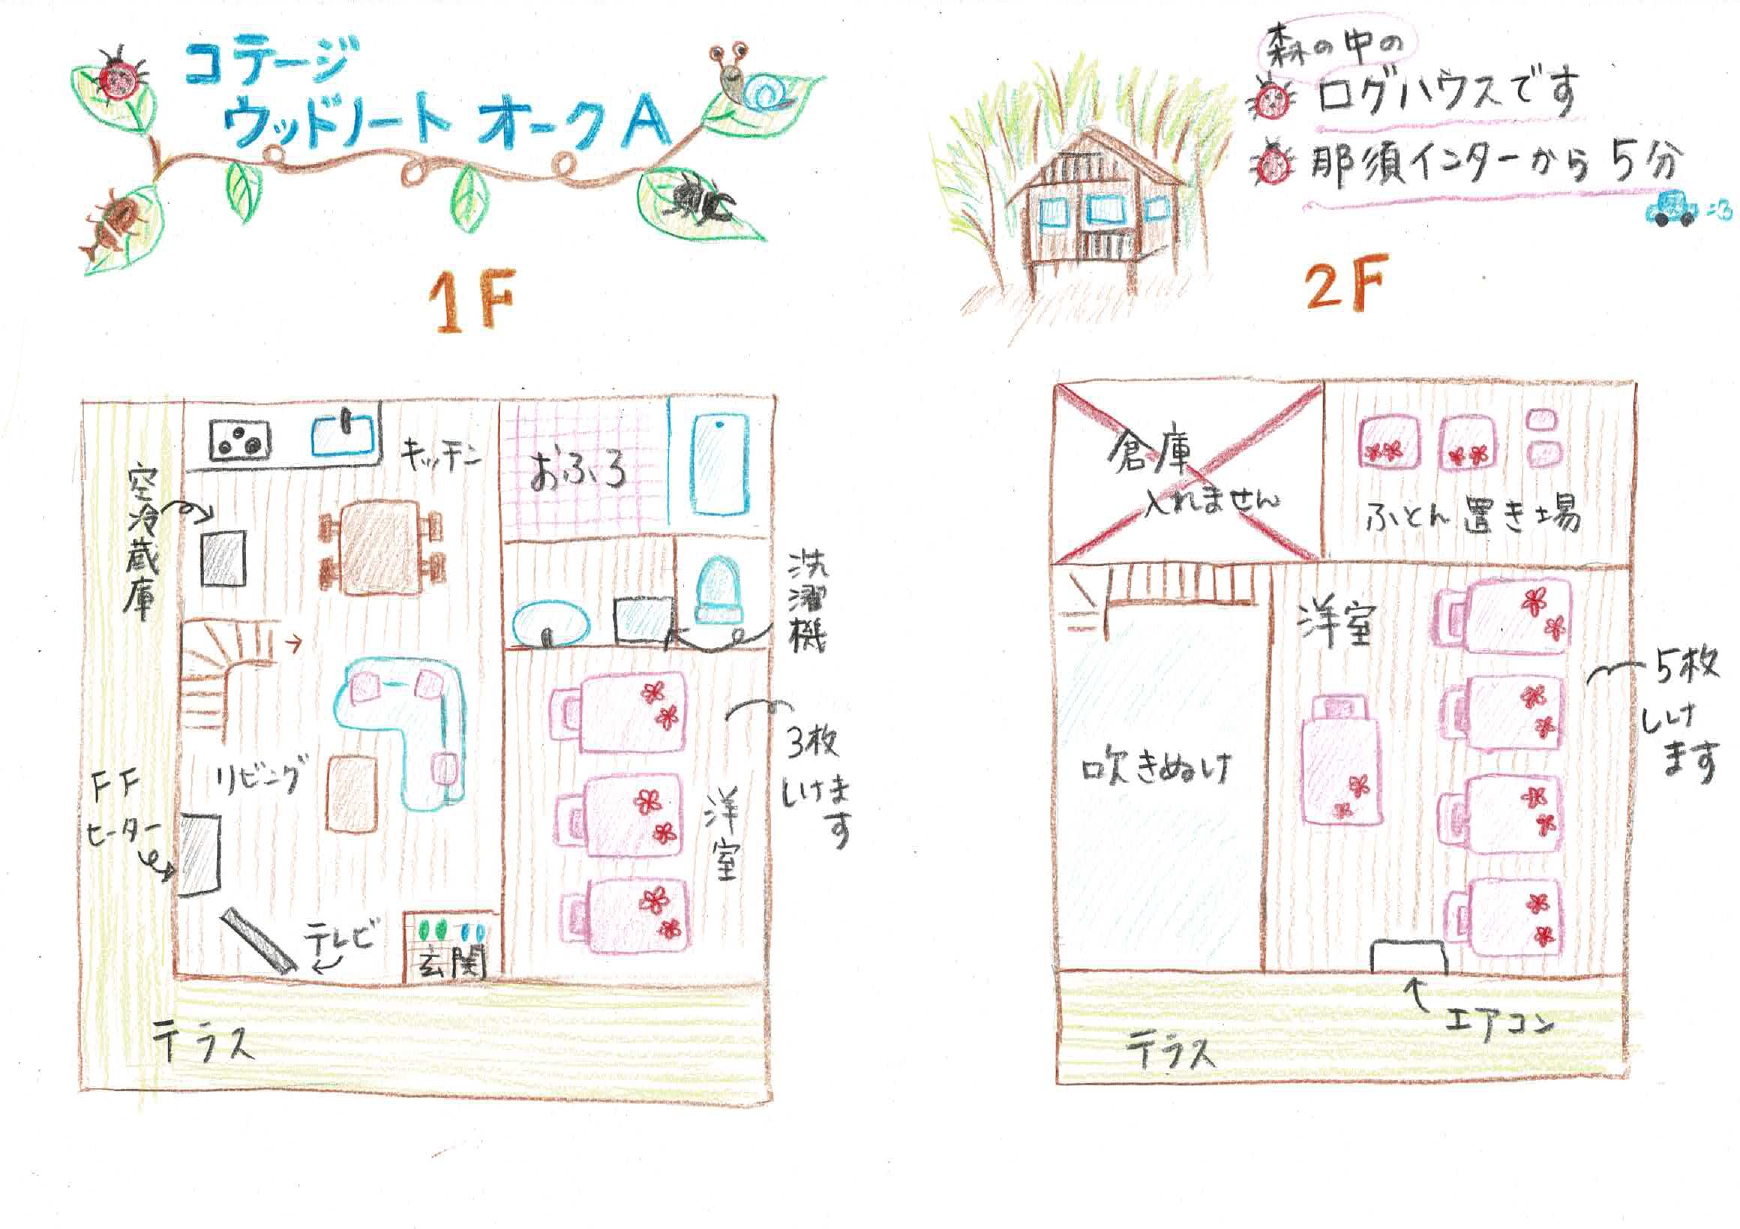 コテージ
ウッドノート オークA
森の中の
ログハウスです
那須インターから5分
1F
2F
キッチン
おふろ
空冷蔵庫
洗濯機
リビング
FF
ヒーター
3枚
しけます
洋室
テレビ
玄関
テラス
倉庫
入れません
ふとん置き場
洋室
5枚
しけ
ます
吹きぬけ
エアコン
テラス